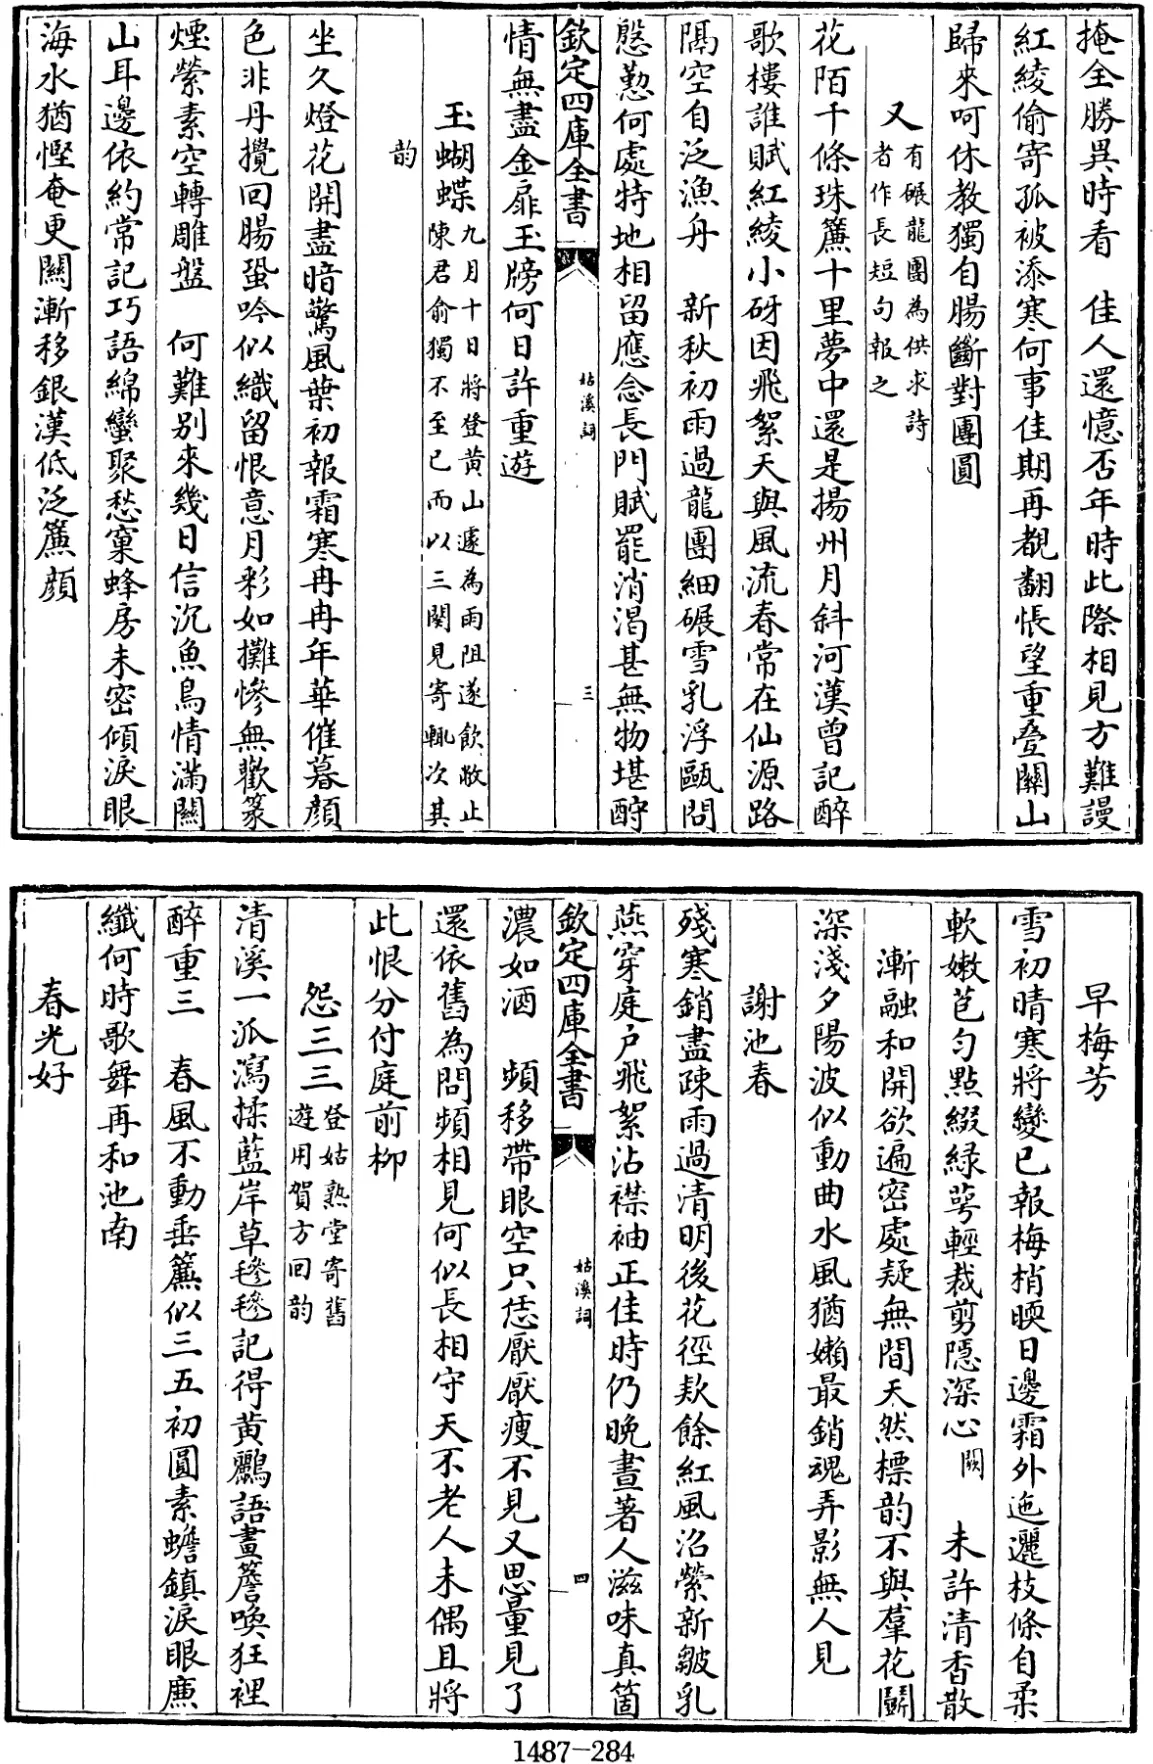 掩全勝異時看　佳人還憶否年時此際相見方難謾
紅綾偷寄孤被添寒何事佳期再覩翻悵望重疊關山
歸來呵休教獨自腸斷對團圓
又有碾龍團為供求詩
者作長短句報之
花陌千條珠簾十里夢中還是揚州月斜河漢曾記醉
歌樓誰賦紅綾小砑因飛絮天與風流春常在仙源路
隔空自泛漁舟　新秋初雨過龍團細碾雪乳浮甌問
慇懃何處特地相留應念長門賦罷消渴甚無物堪酧
欽定四庫全書
姑溪詞
三
情無盡金扉玉牓何日許重遊
玉蝴蝶九月十日將登黄山遽為雨阻遂飲敝止
陳君俞獨不至已而以三闋見寄輒次其
韵
坐久燈花開盡暗驚風葉初報霜寒冉冉年華催暮顔
色非丹攪回腸蛩吟似織留恨意月彩如攤慘無歡篆
煙縈素空轉雕盤　何難别來幾日信沉魚鳥情滿關
山耳邊依約常記巧語綿蠻聚愁窠蜂房未密傾淚眼
海水猶慳奄更闌漸移銀漢低泛簾顔
早梅芳
雪初晴寒將變已報梅梢暎日邊霜外迤邐枝條自柔
軟嫩苞匀點綴緑萼輕裁剪隠深心闕　未許清香散
漸融和開欲遍密處疑無間天然標韵不與羣花鬬
深淺夕陽波似動曲水風猶嬾最銷魂弄影無人見
謝池春
殘寒銷盡疎雨過清明後花徑欵餘紅風沼縈新皺乳
燕穿庭户飛絮沾襟袖正佳時仍晚晝著人滋味真箇
欽定四庫全書
姑溪詞
四
濃如酒　頻移帶眼空只恁厭厭瘦不見又思量見了
還依舊為問頻相見何似長相守天不老人未偶且將
此恨分付庭前柳
怨三三登姑熟堂寄舊
遊用賀方回韵
清溪一派瀉揉藍岸草毿毿記得黄鸝語畫簷喚狂裡
醉重三　春風不動垂簾似三五初圓素蟾鎮淚眼㢘
纖何時歌舞再和池南
春光好
1487-284